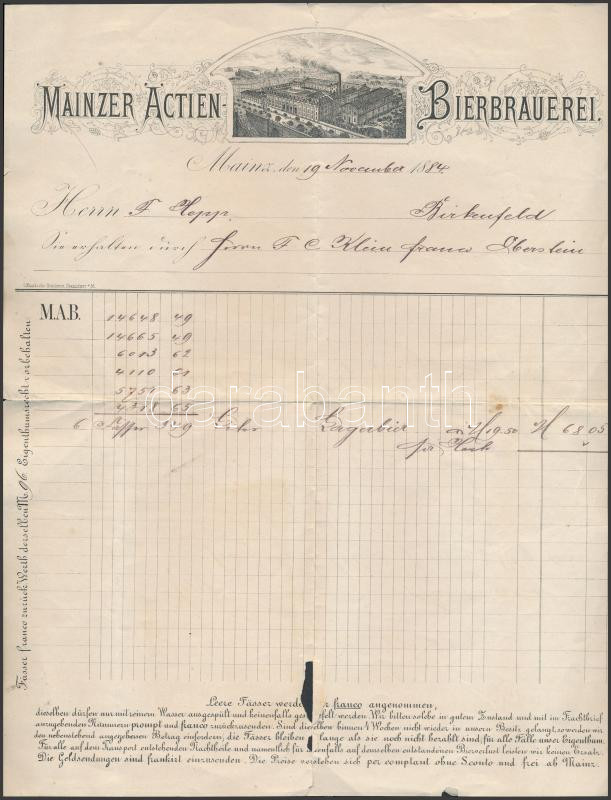 MAINZER ACTIEN- BIERBRAUEREI.
Mainz, den 19 November 1884.
Herrn F. Hepp. Birkenfeld
Sie erhalten durch Herrn F. C. Klein franco Oberstein
M.A.B. 14648 49
14665 49
6013 62
4110 21
5751 63
65
6 Fässer 309 Liter Lagerbier M 19.50 M 68.05
per Hect
darabanth.com
Fässer franco zurück Werth derselben M. 96 Eigenthumsrecht vorbehalten
Leere Fässer werde franco angenommen,
dieselben dürfen nur mit reinem Wasser ausgespült und keinenfalls ges felt werden. Wir bitten solche in gutem Zustand und mit im Frachtbrief
anzugebenden Nummern prompt und franco zurückzusenden. Sind dieselben binnen 4 Wochen nicht wieder in unsern Besitz gelangt, so werden wir
den nebenstehend angegebenen Betrag einfordern, die Fässer bleiben lange als sie noch nicht bezahlt sind, für alle Fälle unser Eigenthum.
Für alle auf dem Transport entstehenden Nachtheile und namentlich für enfalls auf demselben entstandenen Bierverlust leisten wir keinen Ersatz.
Die Geldsendungen sind frankirt einzusenden. Die Preise verstehen sich per comptant ohne Sconto und frei ab Mainz.